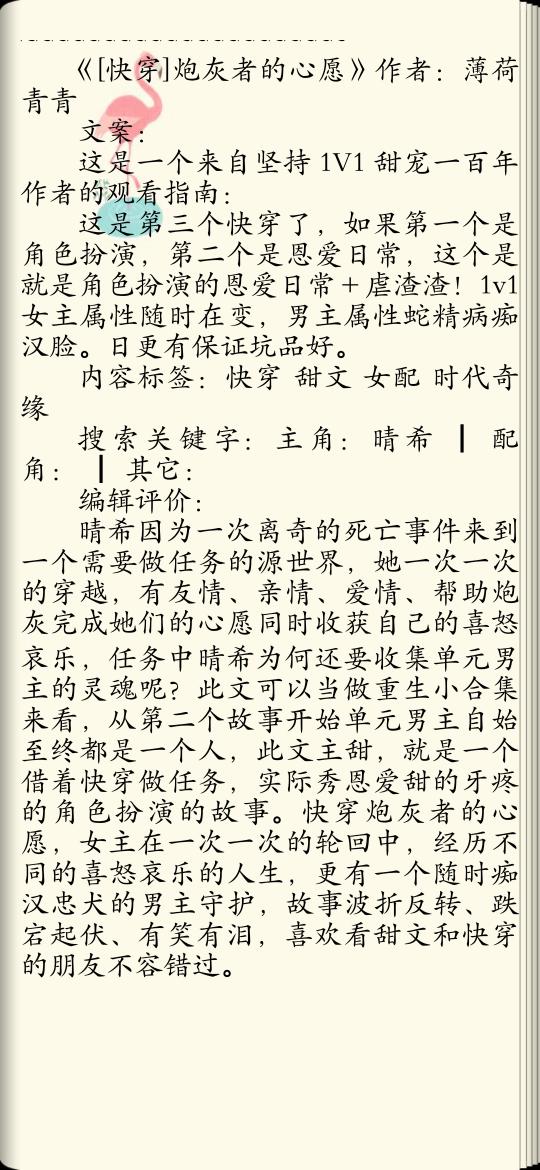 《[快穿]炮灰者的心愿》作者：薄荷
青青
文案：
这是一个来自坚持 1V1 甜宠一百年
作者的观看指南：
这是第三个快穿了，如果第一个是
角色扮演，第二个是恩爱日常，这个是
就是角色扮演的恩爱日常＋虐渣渣！1v1
女主属性随时在变，男主属性蛇精病痴
汉脸。日更有保证坑品好。
内容标签：快穿 甜文 女配 时代奇
缘
搜索关键字：主角：晴希 ┃ 配
角： ┃ 其它：
编辑评价：
晴希因为一次离奇的死亡事件来到
一个需要做任务的源世界，她一次一次
的穿越，有友情、亲情、爱情、帮助炮
灰完成她们的心愿同时收获自己的喜怒
哀乐，任务中晴希为何还要收集单元男
主的灵魂呢？此文可以当做重生小合集
来看，从第二个故事开始单元男主自始
至终都是一个人，此文主甜，就是一个
借着快穿做任务，实际秀恩爱甜的牙疼
的角色扮演的故事。快穿炮灰者的心
愿，女主在一次一次的轮回中，经历不
同的喜怒哀乐的人生，更有一个随时痴
汉忠犬的男主守护，故事波折反转、跌
宕起伏、有笑有泪，喜欢看甜文和快穿
的朋友不容错过。